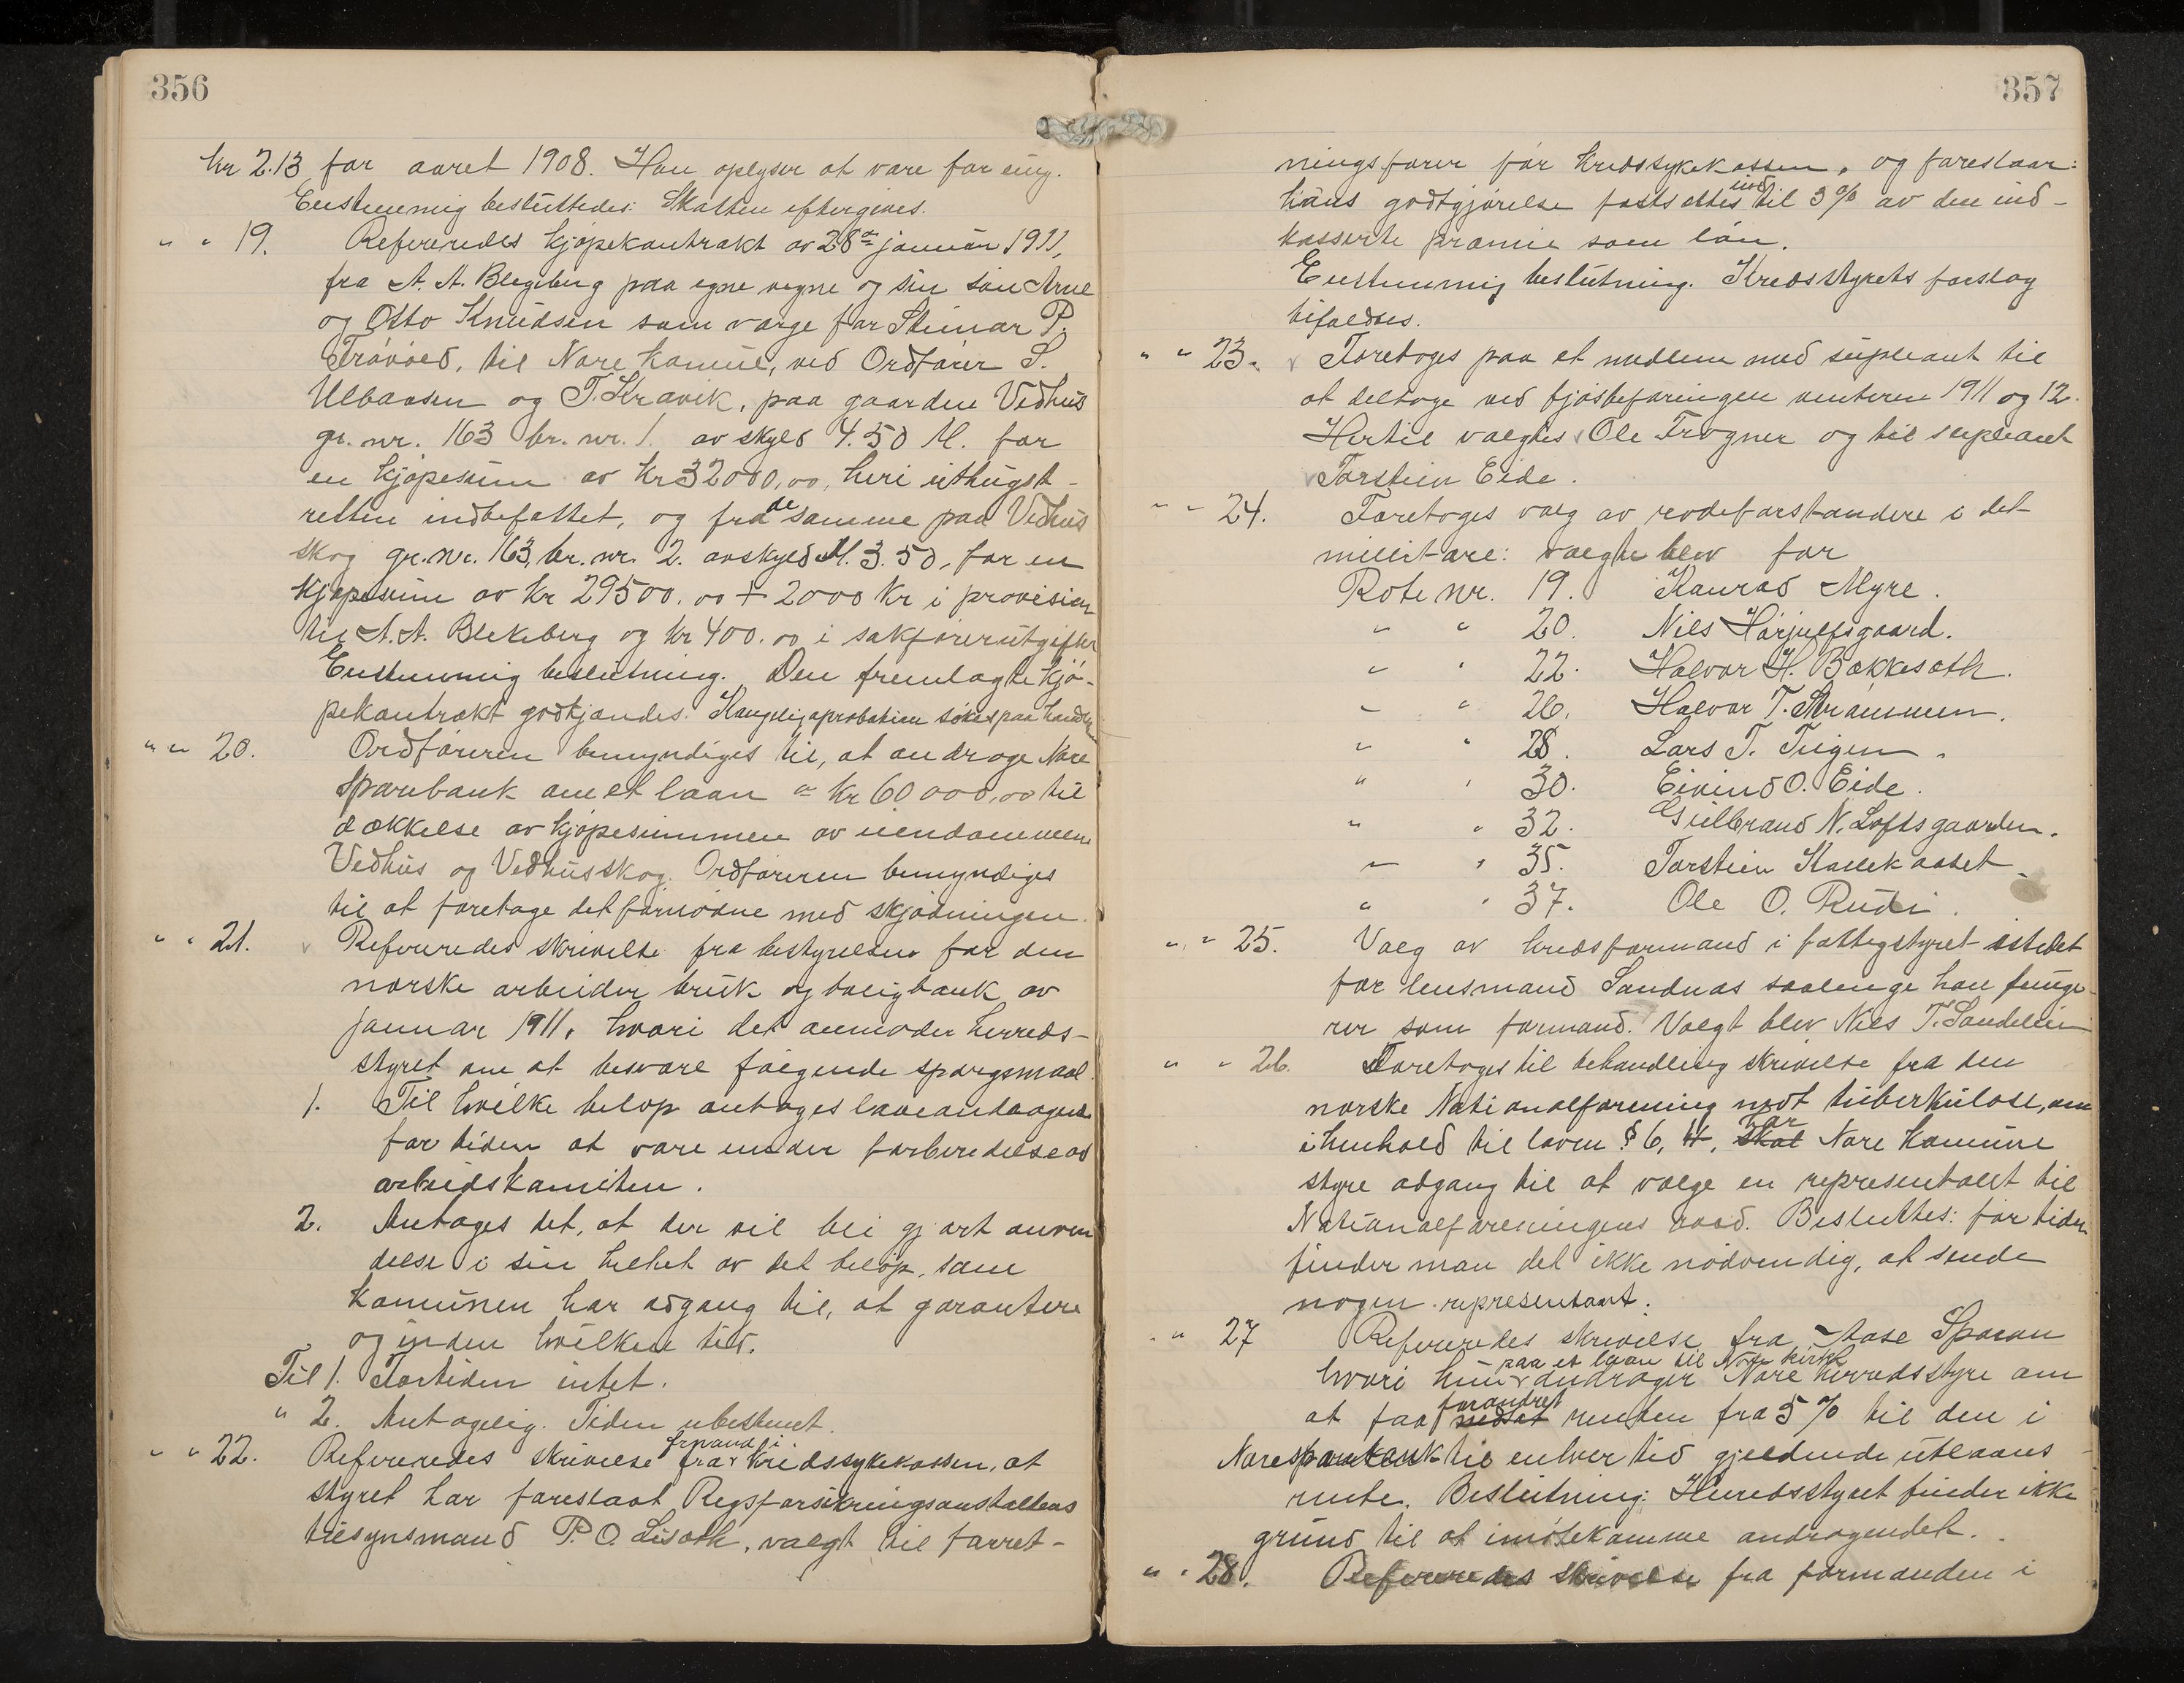 356
kr 2.13 for aaret 1908. Han oplyser at være for ung.
Enstemmig besluttedes: Skatten eftergives.
" " 19. Refereredes kjøpekontrakt av 28de januar 1911,
fra A. A. Blegeberg paa egne vegne og sin søn Arne
og Otto Knudsen som værge for Steinar P.
Traaen, til Nore komune, ved Ordfører S.
Ulbaasen og T. Kravik, paa gaarden Vedhus
gr. nr. 163 br. nr. 1. av skyld 4.50 M. for
en kjøpesum av kr 32000,00, heri uthugst-
retten indbefattet, og fra de samme paa Vedhus
skog gr. nr. 163, br. nr. 2. avskyld M. 3.50, for en
kjøpesum av kr 29500.00 + 2000 kr i provision
til A. A. Blekeberg og kr 400.00 i sakførerutgifter
Enstemmig beslutning. Den fremlagte kjø-
pekontrakt godkjendes. Kongelig aprobation søkes paa handlen
" " 20. Ordføreren bemyndiges til, at androge Nore
Sparebank om et laan a kr 60000,00 til
dækkelse av kjøpesummen av eiendommene
Vedhus og Vedhusskog. Ordføreren bemyndiges
til at foretage det fornødne med skjødningen.
" " 21. v Refereredes skrivelse fra bestyrelsen for den
norske arbeider bruk og boligbank av
januar 1911, hvori det anmoder herreds-
styret om at besvare følgende spørgsmaal.
1. Til hvilke beløp antages laaneandragende
for tiden at være under forberedelse av
arbeidskomiteen.
2. Antages det, at der vil bli gjort anven
delse i sin helhet av det beløp, som
komunen har adgang til, at garantere
og inden hvilken tid.
Til 1. Fortiden intet.
" 2. Antagelig. Tiden ubestemt.
" " 22. Refereredes skrivelse fra frmand i kredssykekassen, at
styret har foreslaat Riksforsikringsanstaltens
tilsynsmand P. O. Lisoth, valgt til forret-
357
ningsfører for kredssykekassen, og foreslaar:
hans godtgjørelse fastsættes ind til 3% av den ind-
kasserte præmie som løn.
Enstemmig beslutning. Kredsstyrets forslag
bifaldtes.
" " 23. v Foretoges paa et medlem med supleant til
at deltage ved fjøsbefaringen vinteren 1911 og 12.
Hertil valgtes v Ole Frogner og til supleant
v Torstein Eide.
" " 24. Foretoges valg av rodeforstandere i det
militære: valgte blev for
Rote nr. 19. Konrad Myre.
" " 20. Nils Hørjulfsgaard.
" " 22. Halvor H. Bækkesøth.
" " 26. Halvor T. Strømmen.
" " 28. Lars T. Tugen.
" " 30. Eivind O. Eide.
" " 32. Gulbrand N. Loftsgaarden.
" " 35. Torstein Kallekaaset.
" " 37. Ole O. Rudi.
" " 25. Valg av kredsformand i fattigstyret istedet
for lensmand Sandnæs saalenge han funge-
rer som formand. Valgt blev Nils T. Sandelien
" " 26. Foretoges til behandling skrivelse fra den
norske Nationalforening mot tuberkulose, om
i henhold til loven § 6, 4, skal har Nore komune
styre adgang til at vælge en representant til
Nationalforeningens raad. Besluttes: for tiden
finder man det ikke nødvendig, at sende
nogen representant.
" " 27 Refereredes skrivelse fra Aase Sporan
hvori hun paa et laan til Nore kirke androger Nore herredsstyre om
at faa nedsat forandret renten fra 5% til den i
Nore sparebank til enhver tid gjeldende utlaans
rente. Beslutning: Herredsstyret finder ikke
grund til at imøtekomme andragendet.
" " 28. Refereredes skrivelse fra formanden i